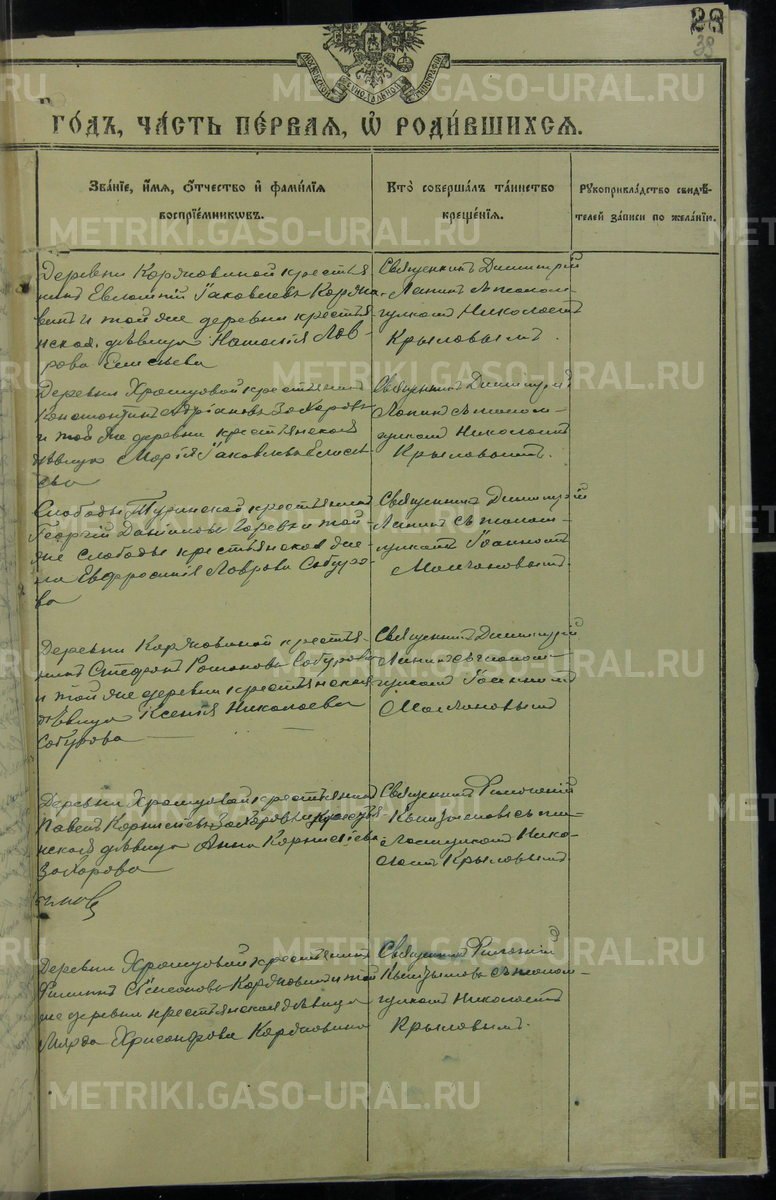 23
39
МОСКОВСКОЙ СѴНОДАЛЬНОЙ ТИПОГРАФІИ
METRIKI.GASO-URAL.RU
го́дъ, ча́сть пе́рвая, ѡ҆ роди́вшихсѧ.
Зва́нїе, и҆́мѧ, ѻ҆́тчество и҆ фами́лїѧ
воспрїе́мникѡвъ.
Кто̀ соверша́лъ та́инство
креще́нїѧ.
Рꙋкоприкла́дство свидѣ́-
телей за́писи по жела́нїю.
Деревни Коряковиной крестья
нинъ Евломпій Іаковлевъ Коряко-
винъ и той же деревни крестья-
нская дѣвица Наталія Лав-
рова Елисеева
Священникъ Димитрій
Лапинъ съ псалом-
щикомъ Николаемъ
Крыловымъ.
Деревни Храмцовой крестьянинъ
Константинъ Адріановъ Захаровъ
и той же деревни крестьянская
дѣвица Марія Іаковлева Елисе-
ева
Священникъ Димитрій
Лапинъ съ псалом-
щикомъ Николаемъ
Крыловымъ.
Слободы Туринской крестьянинъ
Георгій Даниловъ и той
же слободы крестьянская
Евфросинія Лаврова Сабуро-
ва
Священникъ Димитрій
Лапинъ съ псалом-
щикомъ Іоанномъ
Молчановымъ.
Деревни Коряковиной крестья-
нинъ Стефанъ Романовъ Сабуровъ
и той же деревни крестьянская
дѣвица Ксенія Николаева
Сабурова
Священникъ Димитрій
Лапинъ съ псалом-
щикомъ Іоанномъ
Молчановымъ
Деревни Храмцовой крестьянинъ
Павелъ Корниліевъ Захаровъ и крестья
нская дѣвица Анна Корниліева
Захарова
Священникъ
съ пса-
ломщикомъ Нико-
лаемъ Крыловымъ
Деревни Храмцовой крестьянинъ
Филиппъ Коряковинъ и той
же деревни крестьянская дѣвица
Марѳа Хрисанфова Коряковина
Священникъ
съ псалом-
щикомъ Николаемъ
Крыловымъ.